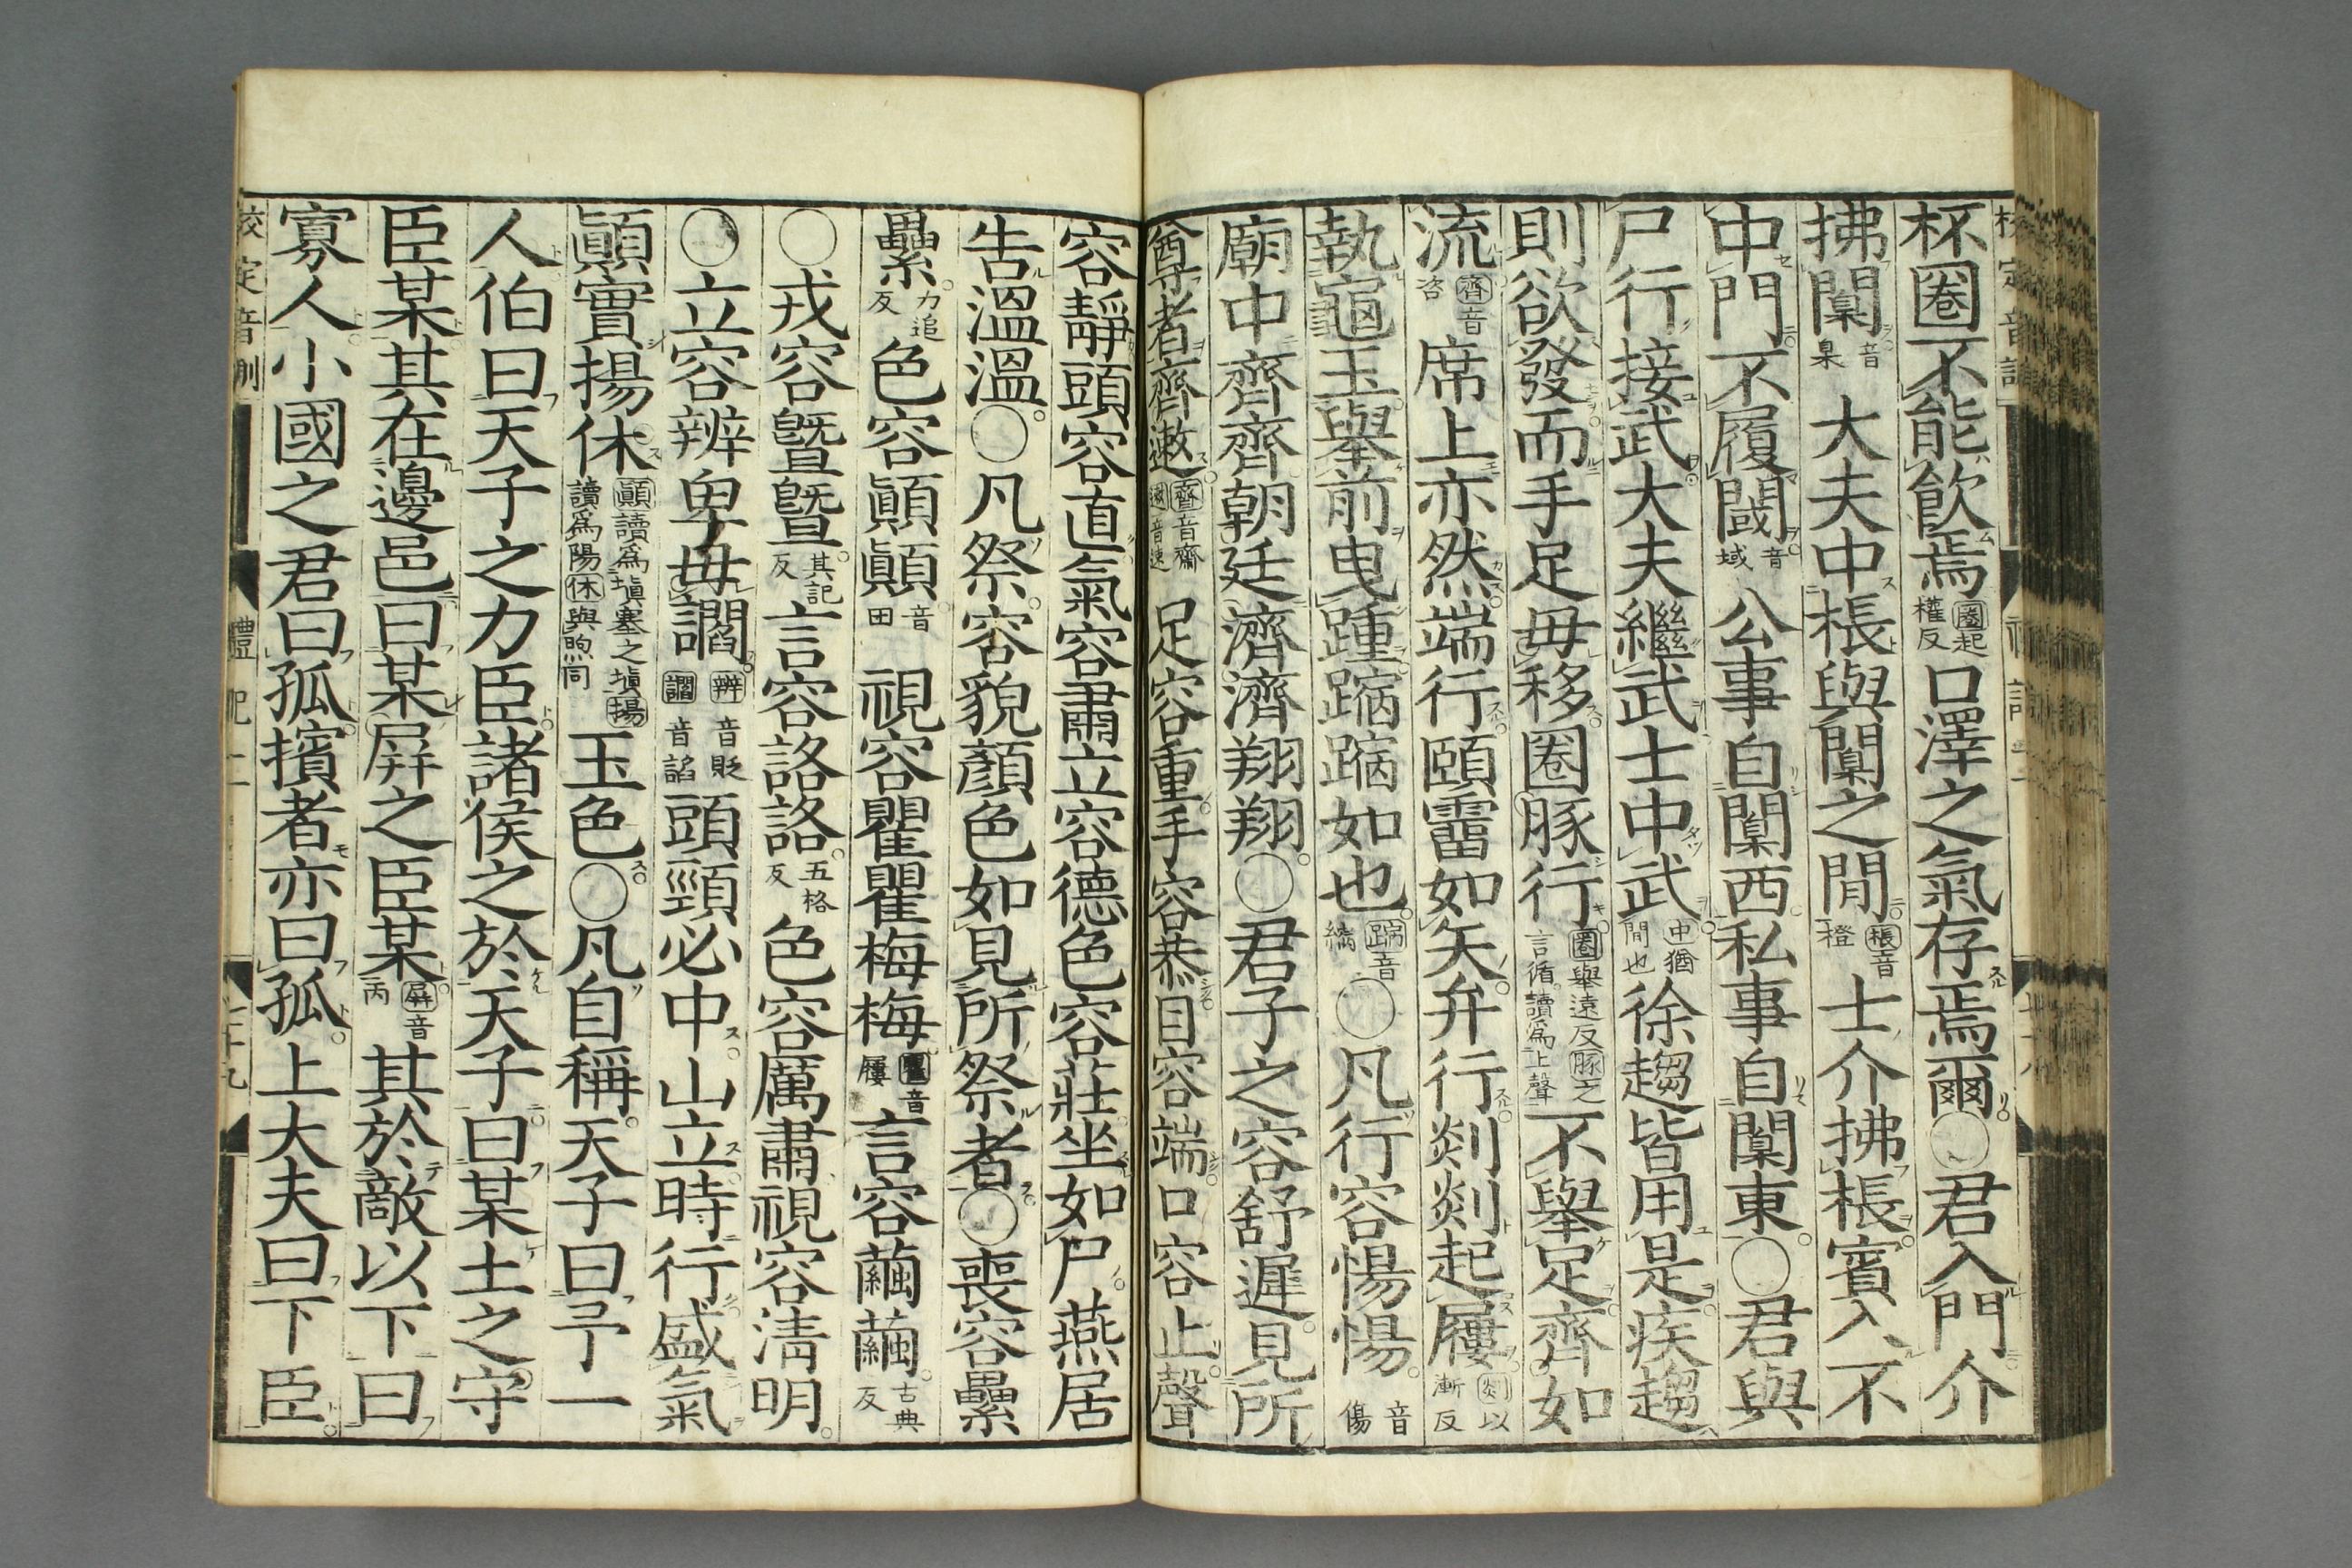 杯圈不能飲焉圈起權反口澤之氣存焉爾○君入門介
拂闑音臬大夫中棖與闑之閒棖音橙士介拂棖賓入不
中門不履閾音域公事自闑西私事自闑東○君與
尸行接武大夫繼武士中武中猶閒也徐趨皆用是疾趨
則欲發而手足毋移圈豚行圈舉遠反豚之言循讀爲上聲不舉足齊如
流齊音咨席上亦然端行頤霤如矢弁行剡剡起屨剡以漸反
執龜玉舉前曳踵蹜蹜如也蹜音縮○凡行容愓愓音傷
廟中齊齊朝廷濟濟翔翔○君子之容舒遲見所
尊者齊遬齊音齋遬音速足容重手容恭目容端口容止聲
容靜頭容直氣容肅立容德色容莊坐如尸燕居
告溫溫○凡祭容貌顏色如見所祭者○喪容纍
纍力追反色容顚顚音田視容瞿瞿梅梅瞿音屨言容繭繭古典反
○戎容曁曁其記反言容詻詻五格反色容厲肅視容淸明
○立容辨卑毋讇辨音貶讇音諂頭頸必中山立時行盛氣
顚實揚休顚讀爲塡塞之塡揚讀爲陽休與煦同玉色○凡自稱天子曰予一
人伯曰天子之力臣諸侯之於天子曰某土之守
臣某其在邊邑曰某屛之臣某屛音丙其於敵以下曰
寡人小國之君曰孤擯者亦曰孤上大夫曰下臣
校定音訓
禮記二
二十九